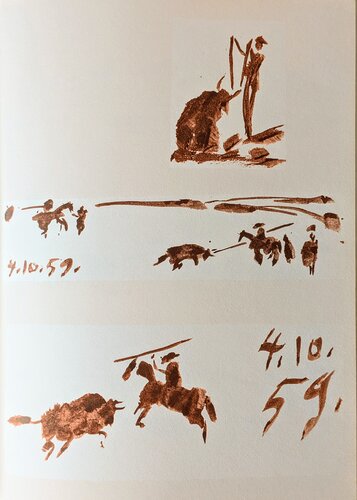 4.10.59.
4.10.
59.